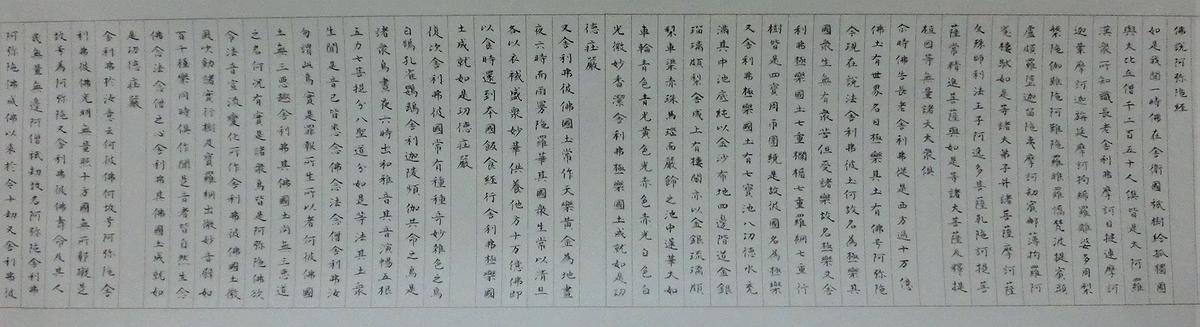 佛說阿弥陀経
如是我聞一時佛在舍衛國祇樹給孤獨園
與大比丘僧千二百五十人俱皆是大阿羅
漢衆所知識長老舍利弗摩訶目揵連摩訶
迦葉摩訶迦旃延摩訶拘絺羅離婆多周梨
槃陀伽難陀阿難陀羅睺羅憍梵波提賓頭
盧頗羅墮迦留陀夷摩訶劫賓那薄拘羅阿
㝹樓馱如是等諸大弟子并諸菩薩摩訶薩
文殊師利法王子阿逸多菩薩乾陀訶提菩
薩常精進菩薩與如是等諸大菩薩及釋提
桓因等無量諸天大衆俱
尒時佛告長老舍利弗從是西方過十万億
佛土有世界名曰極樂其土有佛号阿弥陀
今現在說法舍利弗彼土何故名為極樂其
國衆生無有衆苦但受諸樂故名極樂又舍
利弗極樂國土七重欄楯七重羅網七重行
樹皆是四寶周帀圍繞是故彼國名為極樂
又舍利弗極樂國土有七寶池八功德水充
滿其中池底純以金沙布地四邊階道金銀
瑠璃頗梨合成上有樓閣亦以金銀琉璃頗
梨車璖赤珠馬瑙而嚴飾之池中蓮華大如
車輪青色青光黄色黄光赤色赤光白色白
光微妙香潔舍利弗極樂國土成就如是功
德莊嚴
又舍利弗彼佛國土常作天樂黄金為地晝
夜六時而雨曼陀羅華其國衆生常以清旦
各以衣裓盛衆妙華供養他方十万億佛即
以食時還到本國飯食経行舍利弗極樂國
土成就如是功德莊嚴
復次舍利弗彼國常有種種奇妙雜色之鳥
白鵠孔雀鸚鵡舍利迦陵頻伽共命之鳥是
諸衆鳥晝夜六時出和雅音其音演暢五根
五力七菩提分八聖道分如是等法其土衆
生聞是音已皆悉念佛念法念僧舍利弗汝
勿謂此鳥實是罪報所生所以者何彼佛國
土無三惡趣舍利弗其佛國土尚無三惡道
之名何況有實是諸衆鳥皆是阿弥陀佛欲
令法音宣流變化所作舍利弗彼佛國土微
風吹動諸寶行樹及寶羅網出微妙音譬如
百千種樂同時俱作聞是音者皆自然生念
佛念法念僧之心舍利弗其佛國土成就如
是功德莊嚴
舍利弗於汝意云何彼佛何故号阿弥陀舍
利弗彼佛光明無量照十方國無所鄣礙是
故号為阿弥陀又舍利弗彼佛壽命及其人
民無量無邊阿僧祇劫故名阿弥陀舍利弗
阿弥陀佛成佛以来於今十劫又舍利弗彼